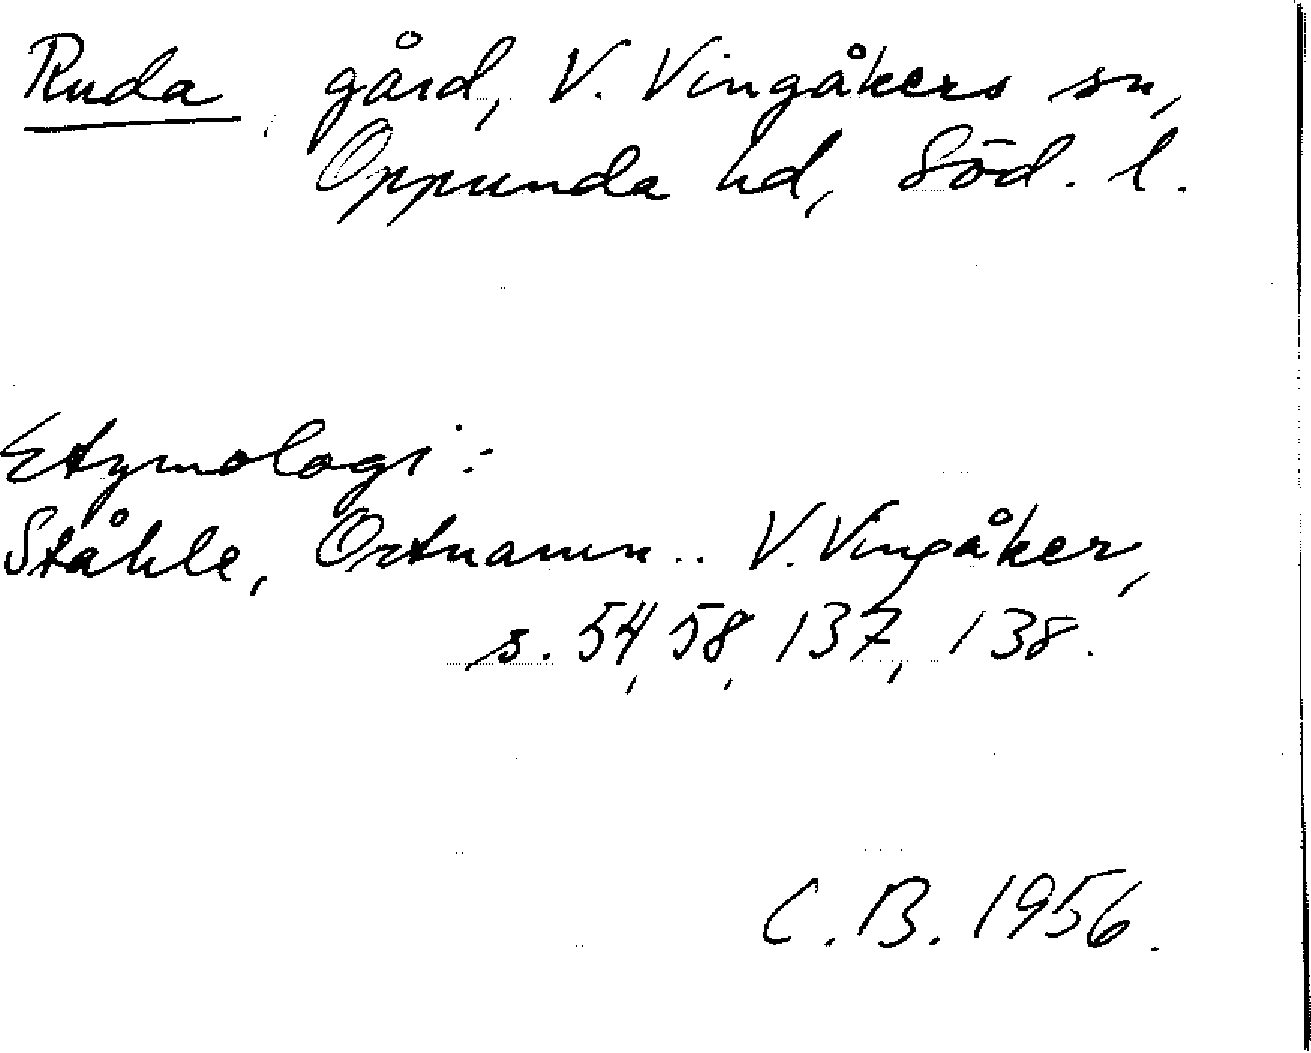 Ruda, gård, V. Vingåkers sn,
Oppunda hd, Söd. l.
Etymologi:
Ståhle, Ortnamn.. V. Vingåker,
s. 54, 58, 137, 138.
C. B. 1956.